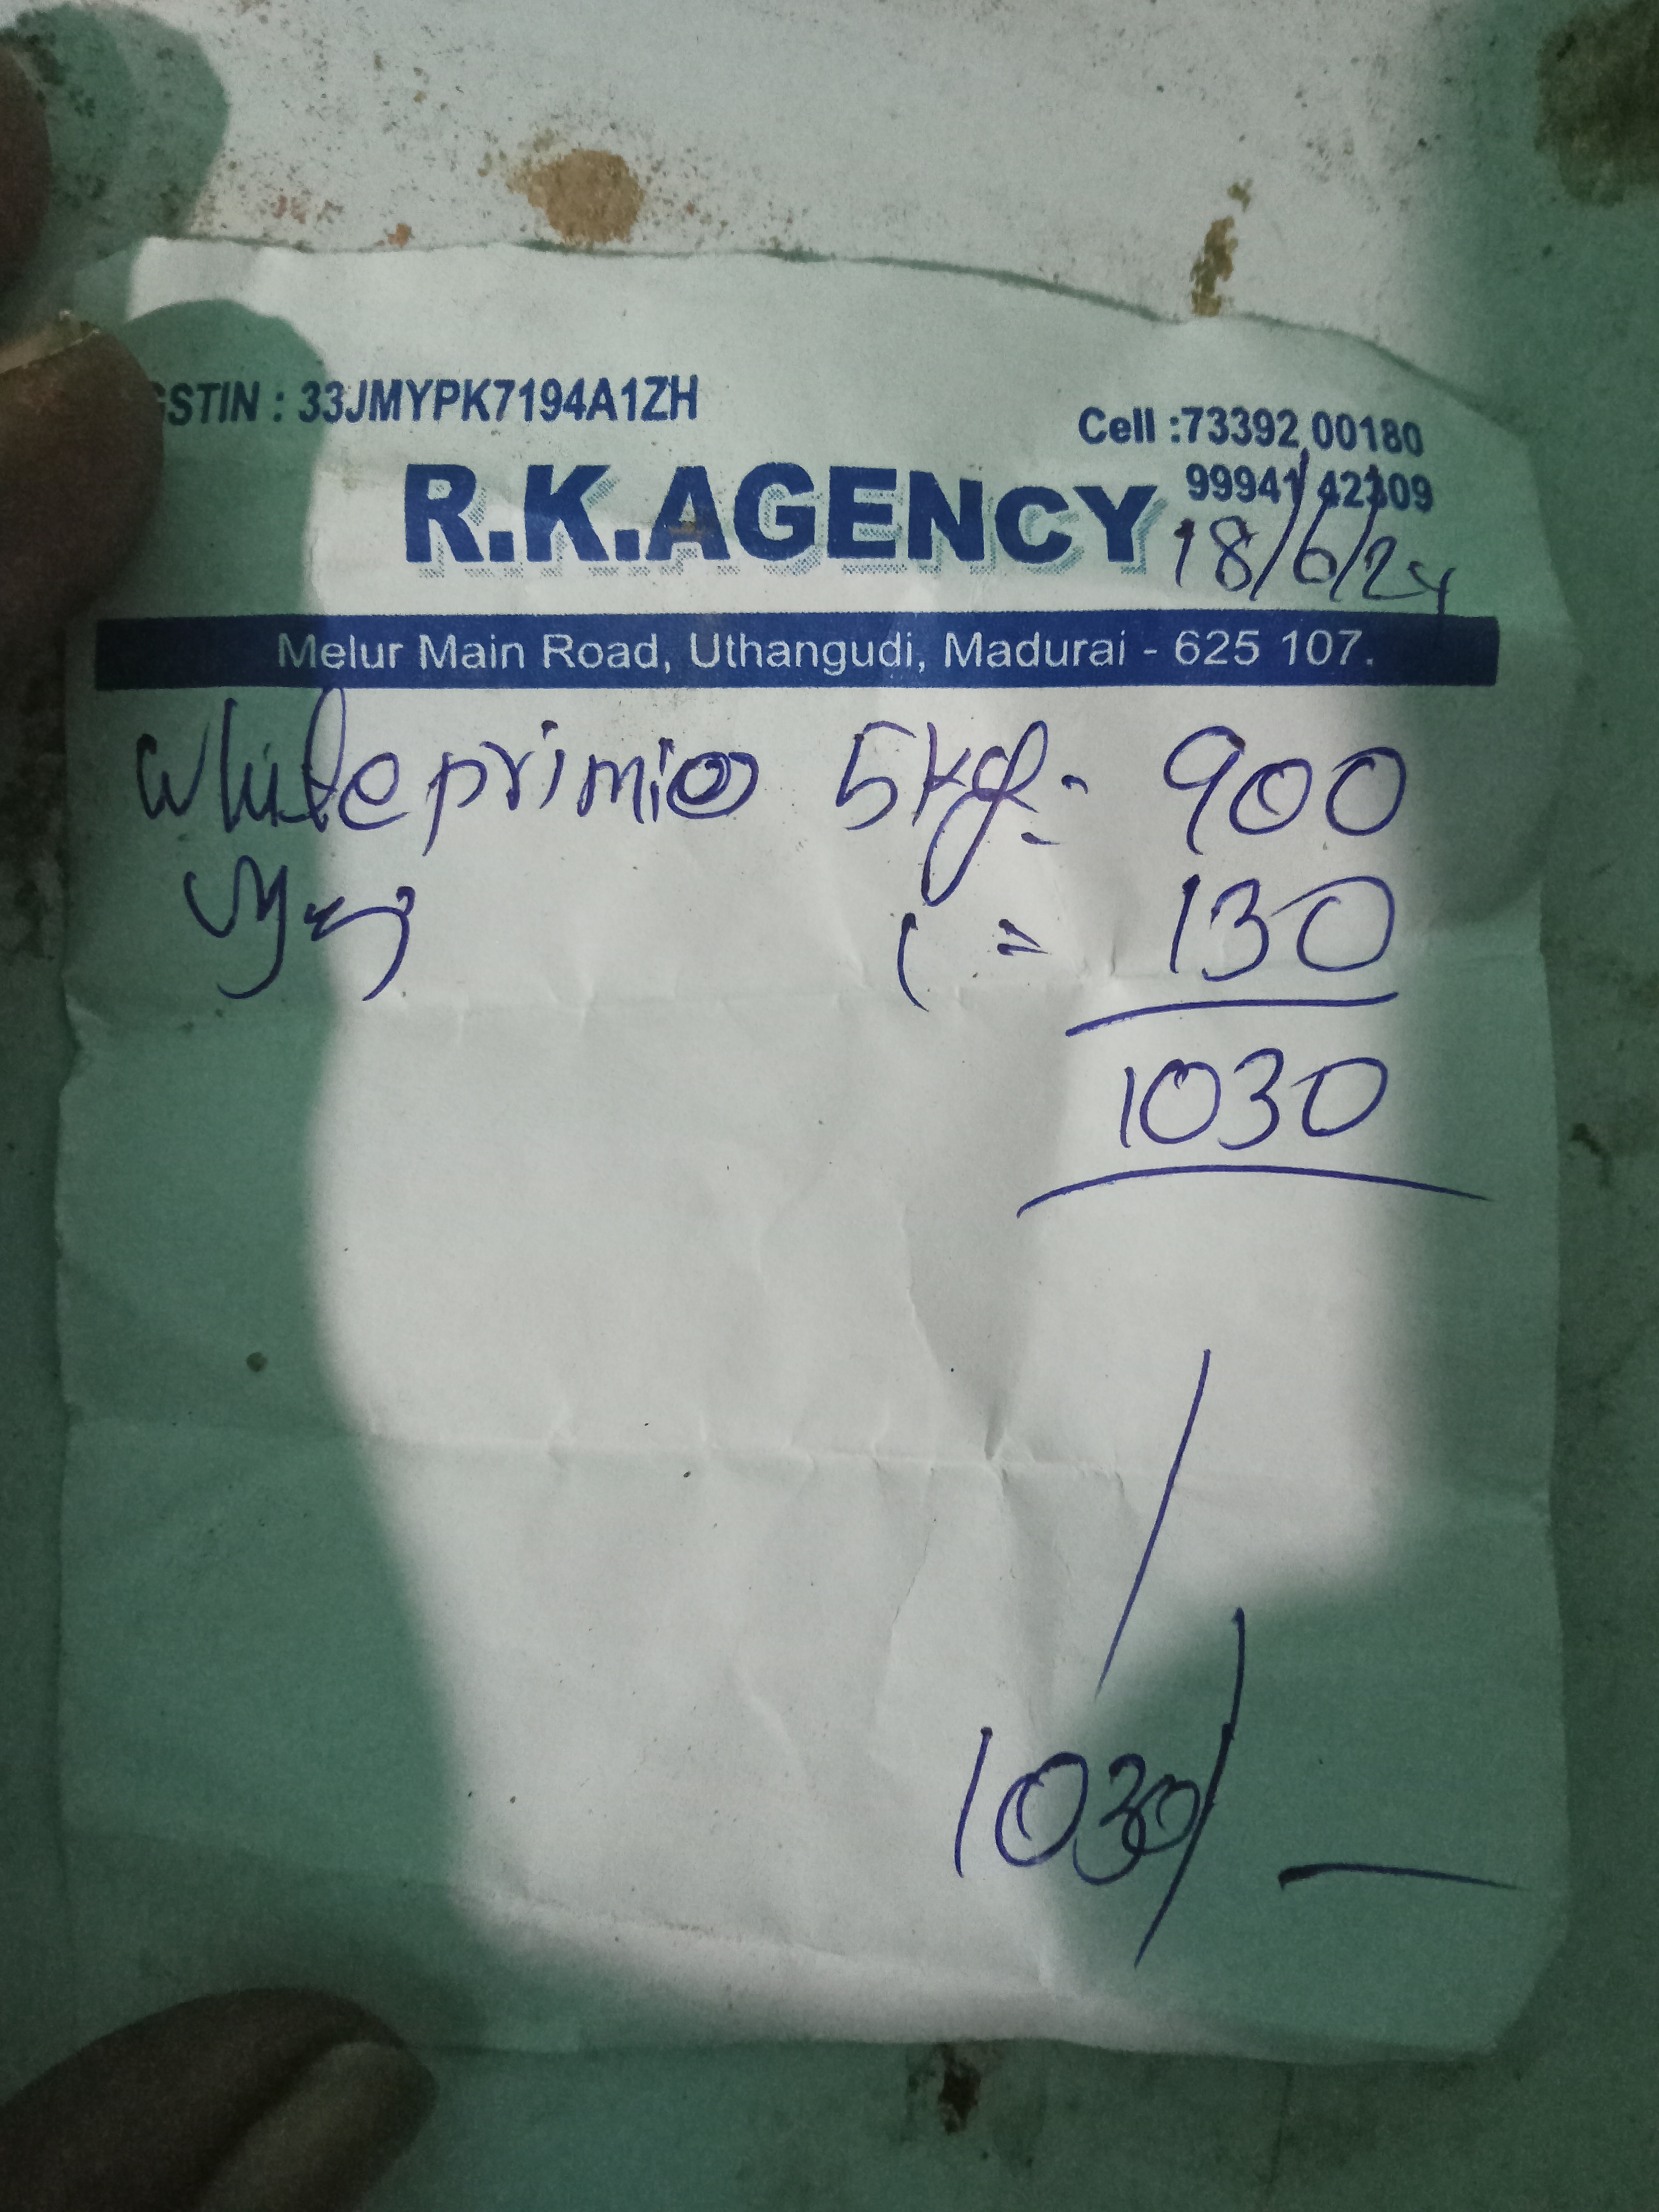 GSTIN : 33JMYPK7194A1ZH
Cell :73392 00180
99941 42309
R.K.AGENCY
18/6/24
Melur Main Road, Uthangudi, Madurai - 625 107.
white 5kg = 900
1 = 130
1030
1030/-